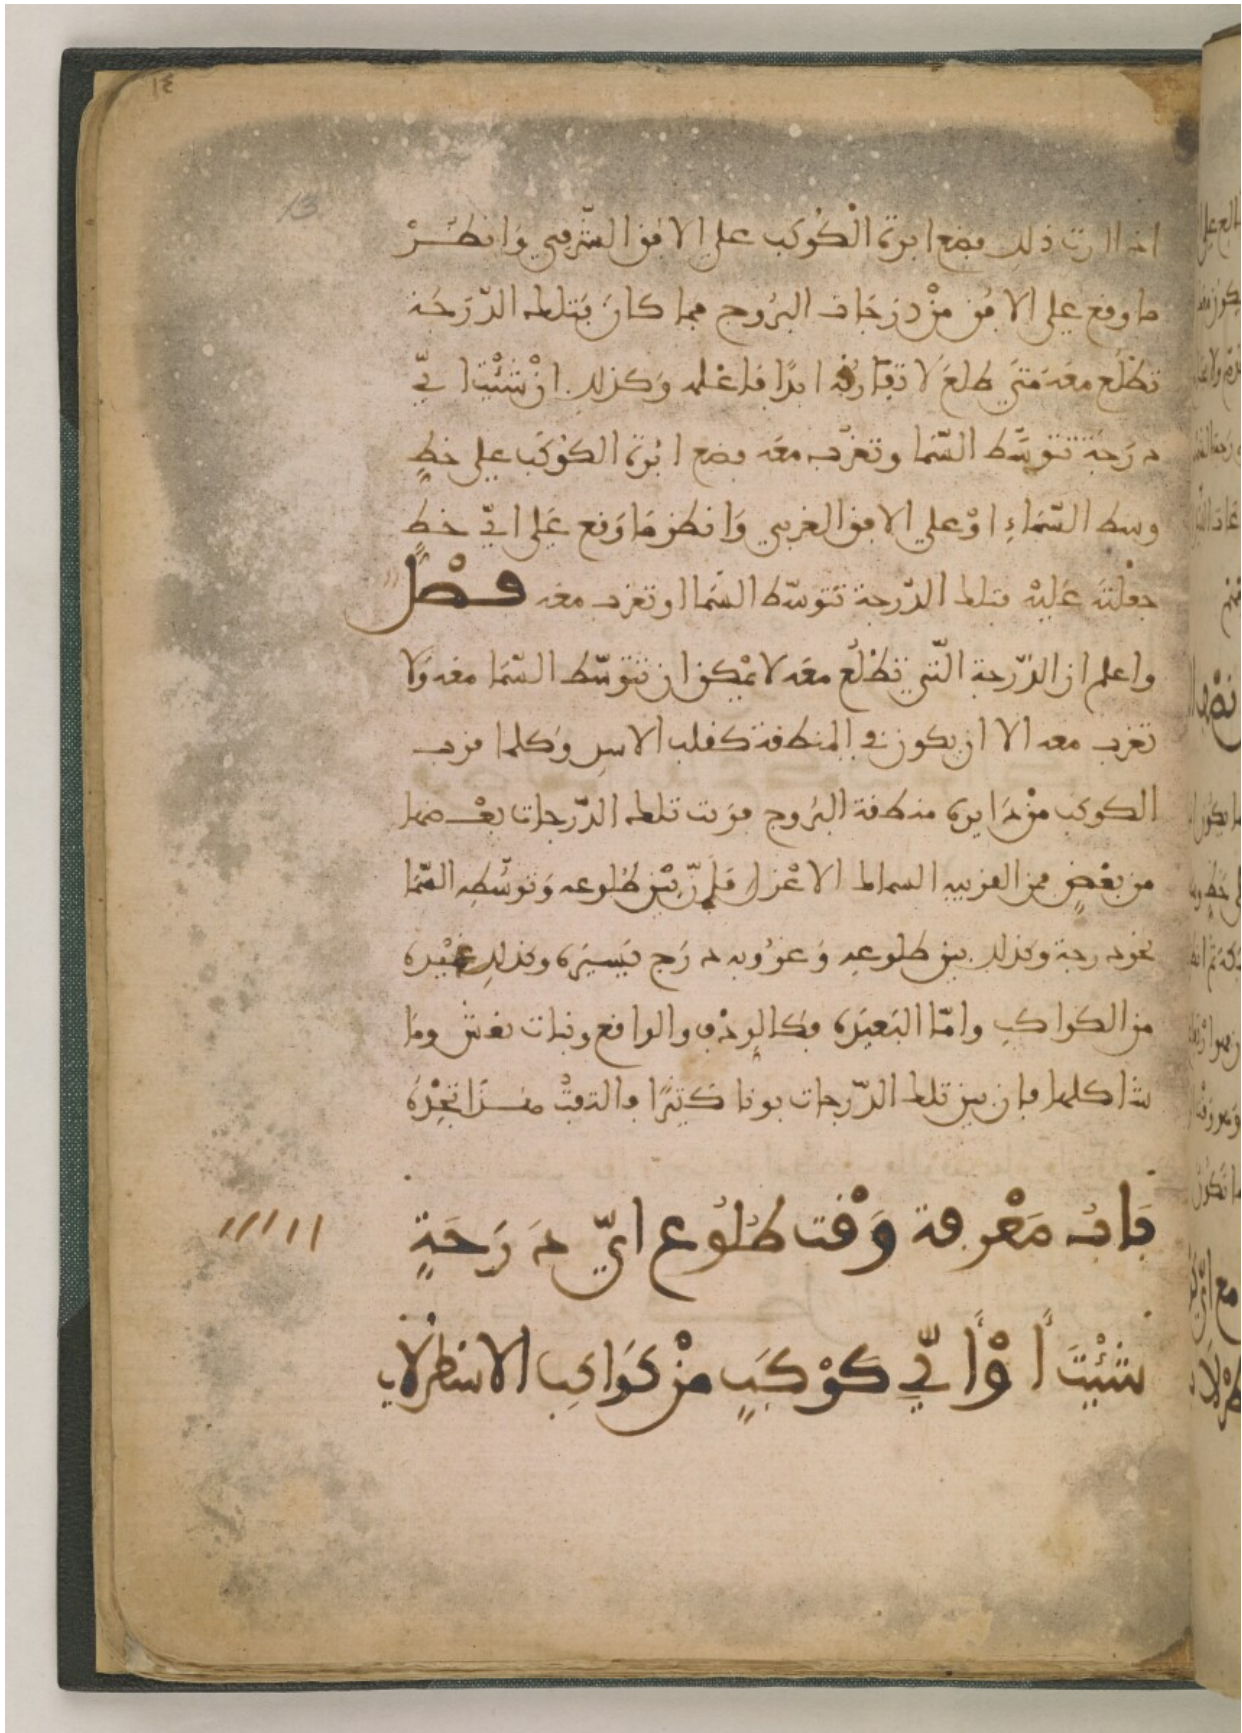 ١٤
13
اذا اردت ذلك فضع ابرة الْكَوكب على الافق الشّرقي وَانظُــرْ
ما وقع على الافُق مِنْ دَرَجَات البُرُوج فما كانَ فتلك الدّرَجَة
تطْلُع معَه مَتىَ طلعَ لا تفَارقُه ابدًا فاعْلمه وَكذلك انْ شئْت ايّ
دَرَجَة تتوسَّط السّمَا وتغرب معَه فضع ابْرة الكَوْكَب على خطِ
وسط السّمَاءِ اوْ على الافق الغربي وَانظر مَا وَقع عَلى ايّ خطٍ
جعلْتَه عَليْه فتلك الدّرجة تتوسّط السّمَا او تغرب معَه فصْلٌ
واعلم ان الدّرجة الّتي تطْلُع معَه لا يمْكن ان تتوَسّط السّمَا معَه وَلا
تغرب معه الا ان يكون في المنطقة كقلب الاسد وَكلما قرب
الكوكب مِنْ دَايرة منطقة البُروج قرَبت تلك الدّرجات بعْــضها
من بعْضٍ فمن القريبه السماك الاعْزل فإنّ بيْن طُلوعه وَتوسّطه السّمَا
نحو درجة وكذلك بين طلوعه وَغرُوبه دَرَج يَسيرَة وكذلك غيْره
من الكواكب وامّا البَعيَدة فكالردْف والواقع وبنات نعْش ومَا
شاكلها فان بين تلك الدّرجات بونا كَثيْرًا فالتفتْ هــذَا تجِدْهُ
بَابُ مَعْرفة وَقْت طُلُوع ايّ دَرَجَةٍ
شئْتَ أوْ ايّ كَوْكَبٍ مِنْ كَوَاكِب الاسْطرْلاب